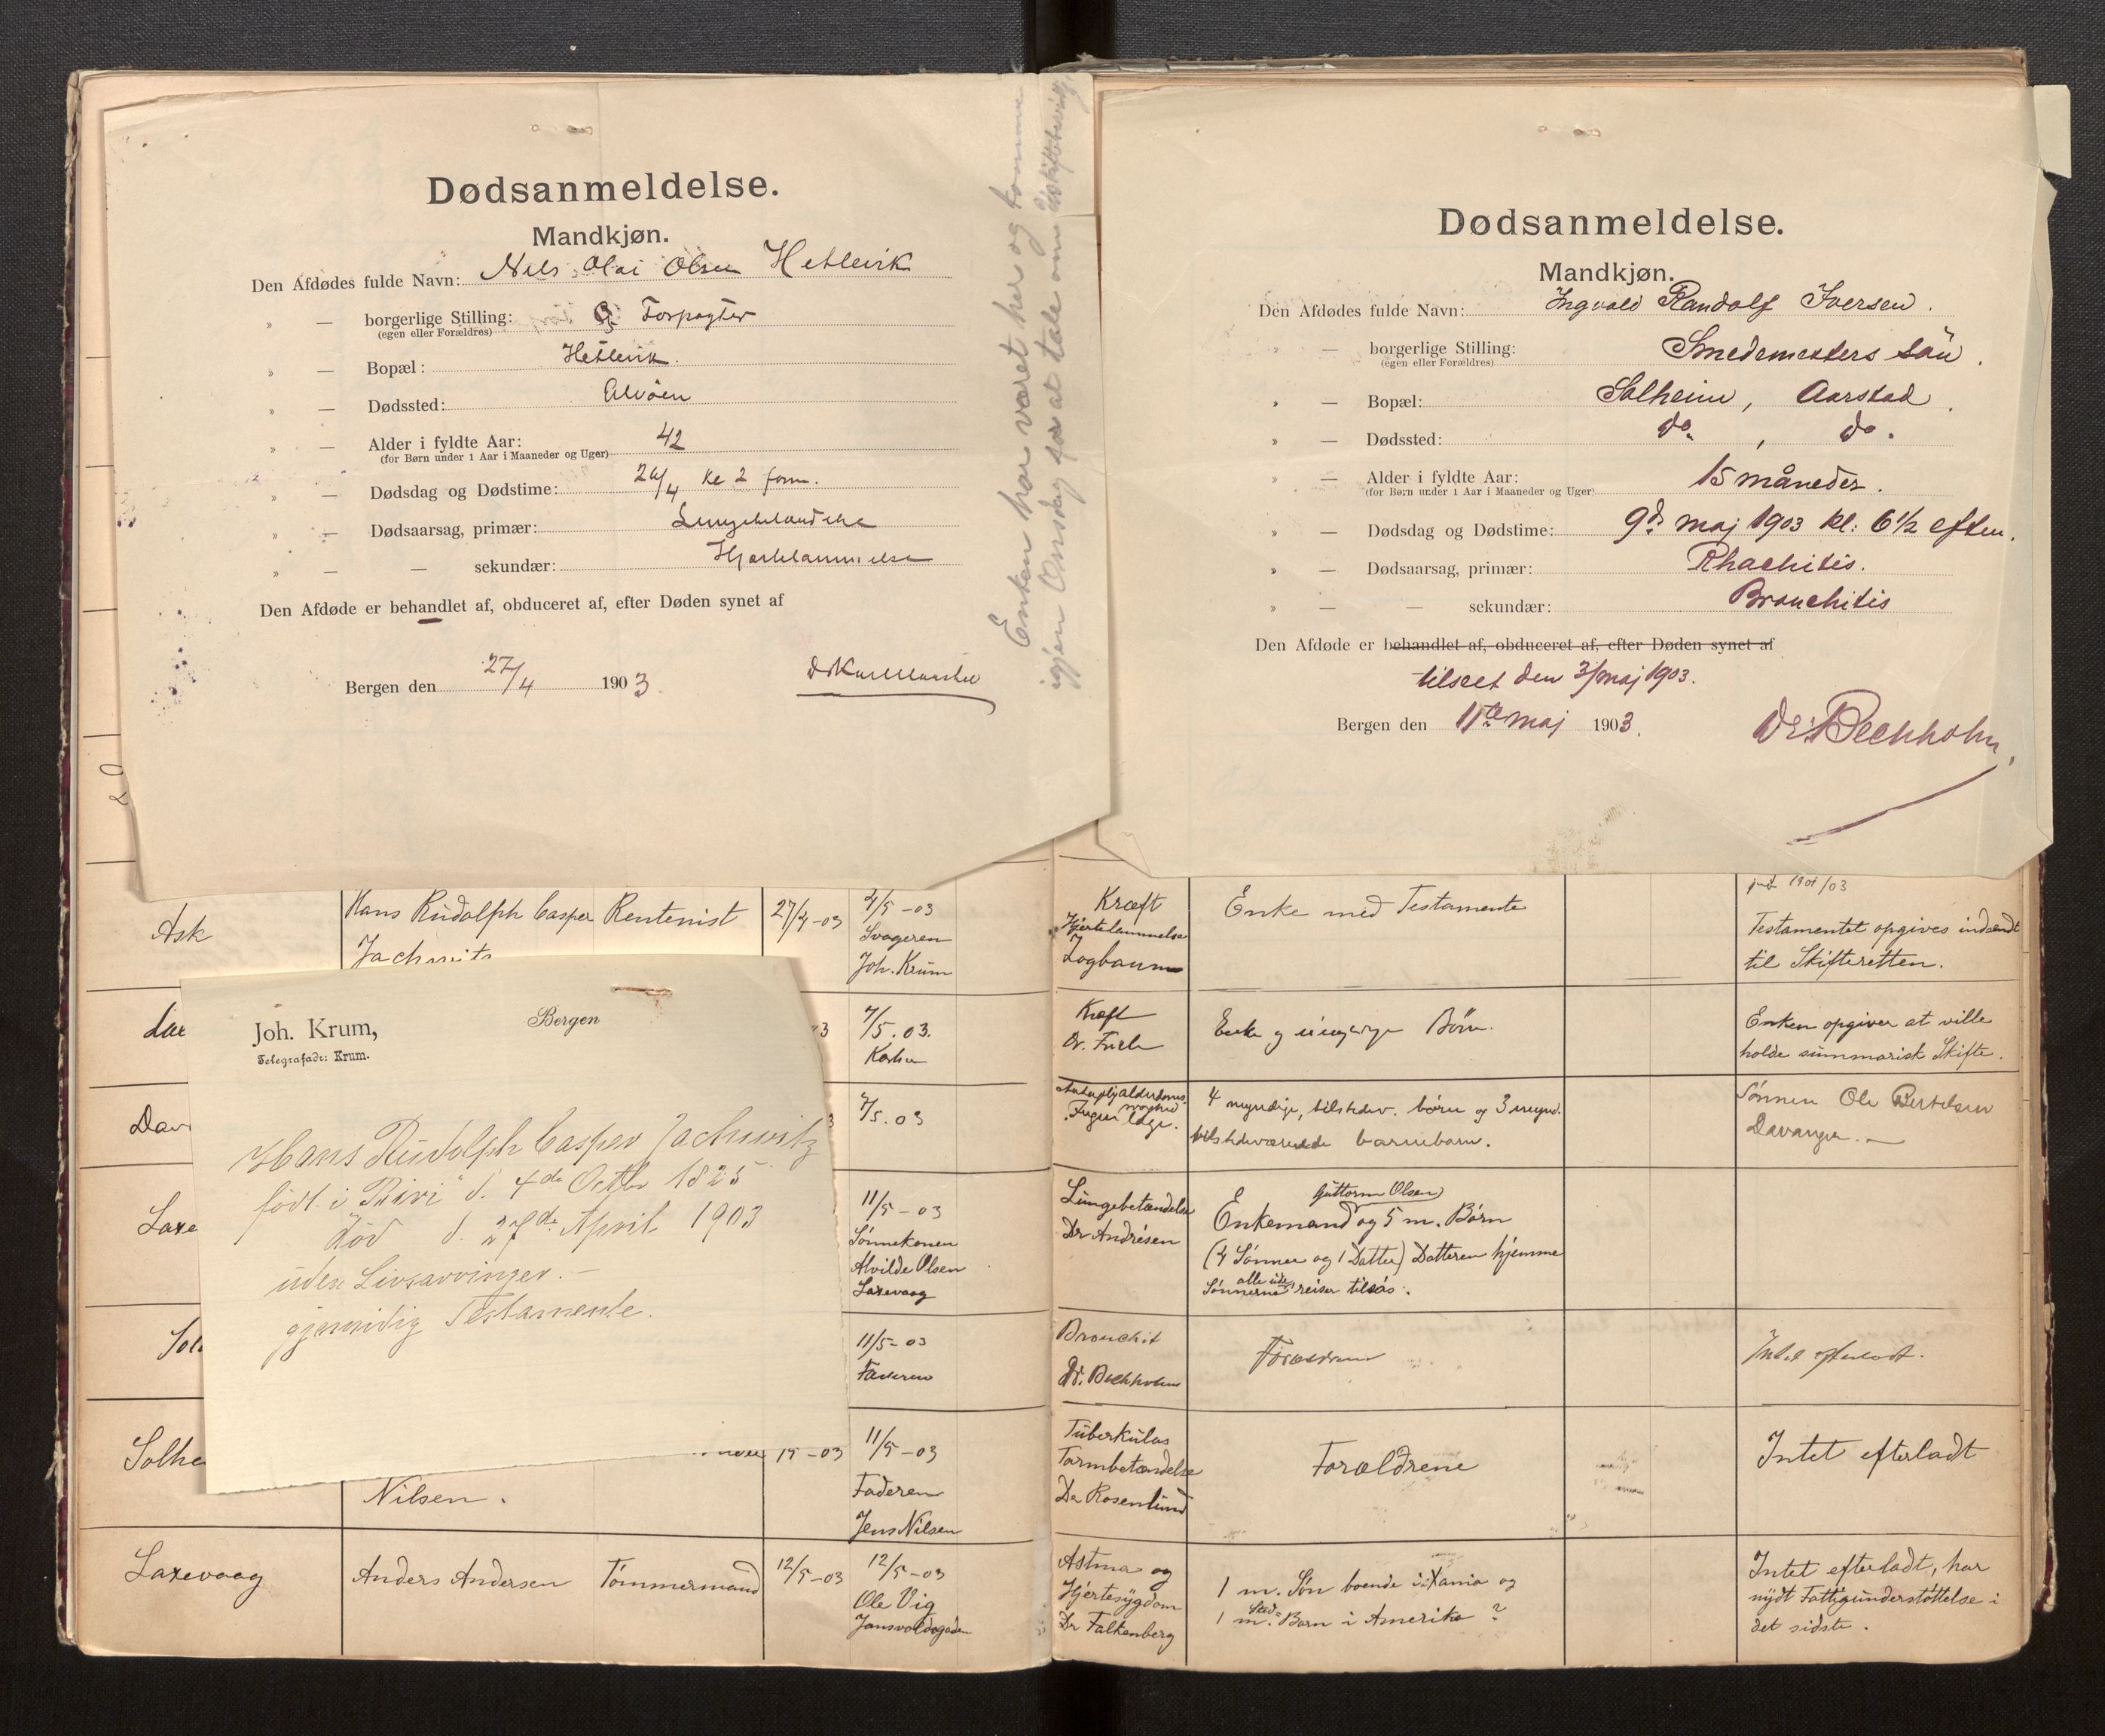 Dødsanmeldelse.
Mandkjøn.
Den Afdødes fulde Navn: Nils Olai Olsen Hetlevik
" — borgerlige Stilling: Forpagter
(egen eller Forældres)
" — Bopæl: Hetlevik.
" — Dødssted: Alvöen
" — Alder i fyldte Aar: 42
(for Børn under 1 Aar i Maaneder og Uger)
" — Dødsdag og Dødstime: 26/4 kl 2 form.
" — Dødsaarsag, primær: Lungebetændelse
" — — sekundær: Hjertelammelse
Den Afdøde er behandlet af, obduceret af, efter Døden synet af
Bergen den 27/4 1903.
Enken har været her og komme
igjen Onsdag for at tale om
Dødsanmeldelse.
Mandkjøn.
Den Afdødes fulde Navn: Ingvald Randolf Iversen.
" — borgerlige Stilling: Smedemesters sön.
(egen eller Forældres)
" — Bopæl: Solheim, Aarstad.
" — Dødssted: do, do.
" — Alder i fyldte Aar: 15 måneder.
(for Børn under 1 Aar i Maaneder og Uger)
" — Dødsdag og Dødstime: 9de maj 1903 kl: 6½ eften.
" — Dødsaarsag, primær: Rhachitis.
" — — sekundær: Bronchitis
Den Afdøde er behandlet af, obduceret af, efter Døden synet af
tilseet den 3/maj 1903.
Bergen den 11te maj 1903.
Dr. Bechholm,
Ask
Hans Rudolph Casper Rentenist
Jachwitz
27/4-03
4/5-03
Svogeren
Joh. Krum
Kræft
Hjertelammelse
Enke med Testamente
1901/03
Testamentet opgives indsendt
til Skifteretten.
Joh. Krum, Bergen
Telegrafadr: Krum.
Hans Rudolph Casper Jachwitz
født i d. 4de Octbr 1825
Död d. 27de April 1903
uden Livsarvinger.—
gjensidig Testamente.
Lax
7/5.03.
Kræft
Enke og umyndige Börn.
Enken opgiver at ville
holde summarisk Skifte.
Dav
7/5.03
4 myndige, tilstedev. börn og 3 umynd.
tilstedeværende barnebarn.
Sönnen Ole Bertelsen
Davanger.—
Laxe
11/5-03
Sönnekonen
Alvilde Olsen
Laxevaag
Lungebetændelse
Dr Andresen
Guttorm Olsen
Enkemand og 5 m. Börn
(4 Sönner og 1 Datter) Datteren hjemme
Sönnerne alle reiser tilsös.
Sol
11/5-03
Faderen
Bronchit
Dr. Bechholm
Forældrene
Intet efterladt.
Solhe
Nilsen.
11/5-03
Faderen
Jens Nilsen
Tuberkulös
Tarmbetændelse
Dr Rosenlund
Forældrene
Intet efterladt
Laxevaag
Anders Andersen Tömmermand
12/5-03
12/5-03
Ole Vig
Astma og
Hjertesygdom
Dr Falkenberg
1 m. Sön boende i Xania og
1 m. Sted- Barn i Amerika ?
Intet efterladt, har
nydt Fattigunderstöttelse i
det sidste.